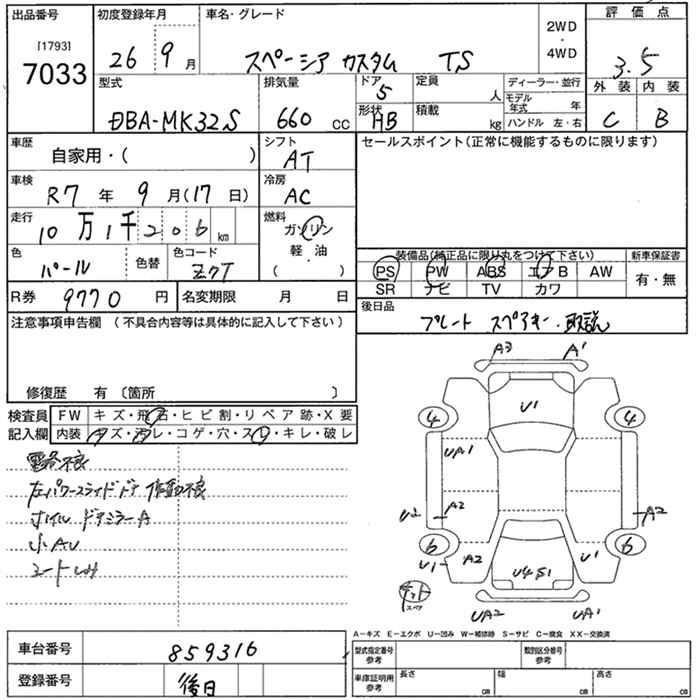 出品番号
[1793]
7033
初度登録年月
26 9月
車名・グレード
スペーシア カスタム TS
2WD
・
4WD
評価点
3.5
外装 内装
C B
型式
DBA-MK32S
排気量
660 cc
ドア
5
形状
HB
定員
人
積載
kg
ディーラー・並行
モデル年式 年
ハンドル 左・右
車歴
自家用・( )
シフト
AT
セールスポイント(正常に機能するものに限ります)
車検
R7年 9月(17日)
冷房
AC
走行
10万1千206km
燃料
ガソリン
軽・油
( )
色
パール
色替
色コード
ZVT
装備品(純正品に限り丸をつけて下さい)
PS PW ABS エアB AW
SR ナビ TV カワ
新車保証書
有・無
R券 9770円
名変期限 月 日
後日品
プレート スペアキー・取説
注意事項申告欄 (不具合内容等は具体的に記入して下さい)
修復歴 有 〔箇所 〕
検査員
記入欄
FW キズ・飛石・ヒビ割・リペア跡・X要
内装 キズ・汚レ・コゲ・穴・スレ・キレ・破レ
電格不良
左パワースライドドア作動不良
ホイル ドアミラーA
小AU
A3 A1
U1
4 4
UA1
U2 A2
A2
6 6
U1 A2
U1
U4 S1
スペア
UA2 UA1
A−キズ E−エクボ U−凹み W−補修跡 S−サビ C−腐食 XX−交換済
車台番号
859316
登録番号
後日
型式指定番号
参考
類別区分番号
参考
車庫証明用
参考
長さ cm
幅 cm
高さ cm